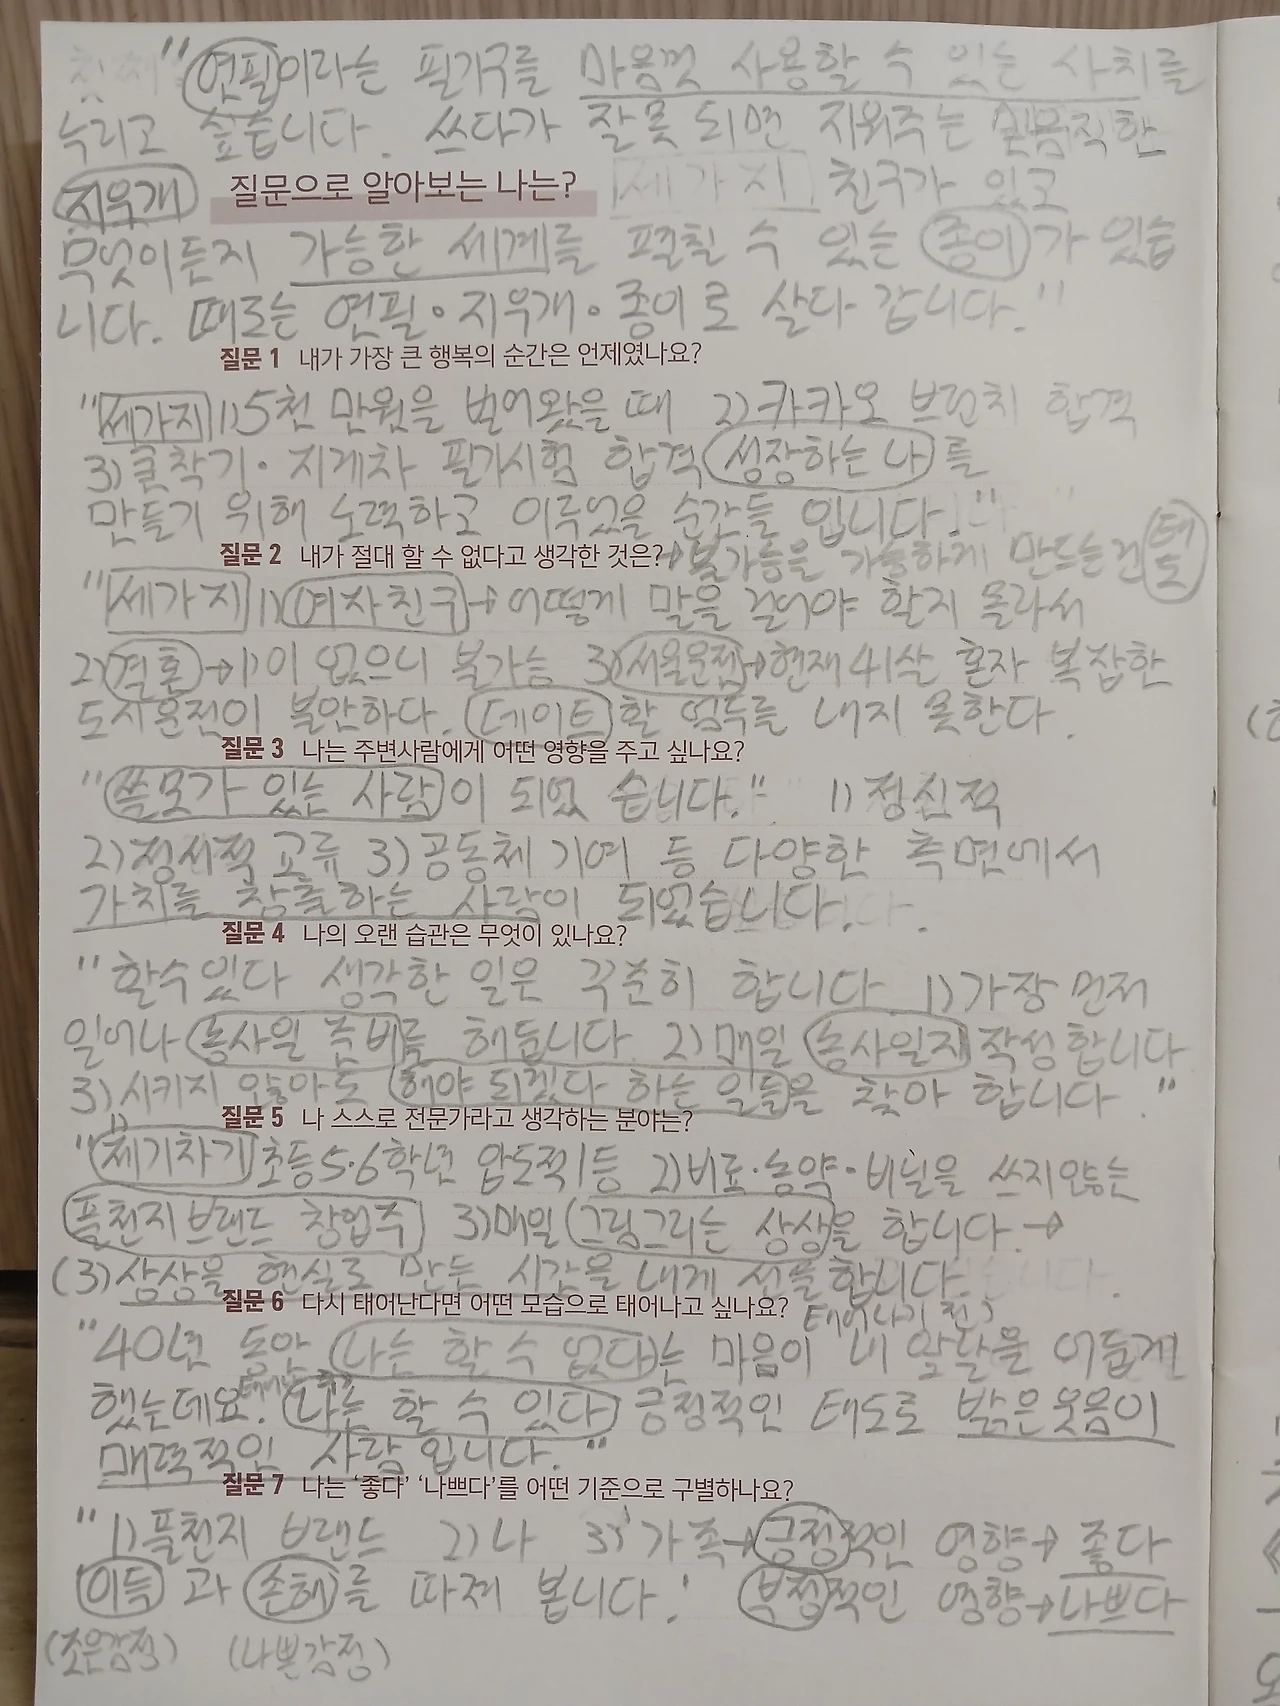 "연필이라는 필기구를 마음껏 사용할 수 있는 사치를
누리고 싶습니다. 쓰다가 잘못 되면 지워주는 믿음직한
지우개 질문으로 알아보는 나는? 세가지 친구가 있고
무엇이든지 가능한 세계를 펼칠 수 있는 종이가 있습
니다. 때로는 연필·지우개·종이로 살다 갑니다."
질문 1 내가 가장 큰 행복의 순간은 언제였나요?
"세가지 1) 5천 만원을 벌어왔을 때 2) 카카오 브런치 합격
3) 굴착기·지게차 필기시험 합격 성장하는 나를
만들기 위해 노력하고 이루었을 순간들 입니다."
질문 2 내가 절대 할 수 없다고 생각한 것은? → 불가능을 가능하게 만드는건 태도
"세가지 1) 여자친구→어떻게 말을 걸어야 할지 몰라서
2) 결혼→1)이 없으니 불가능 3) 서울운전→현재 41살 혼자 복잡한
도시운전이 불안하다. 데이트할 엄두를 내지 못한다.
질문 3 나는 주변사람에게 어떤 영향을 주고 싶나요?
"쓸모가 있는 사람이 되었 습니다." 1) 정신적
2) 정서적 교류 3) 공동체 기여 등 다양한 측면에서
가치를 창출하는 사람이 되었습니다.
질문 4 나의 오랜 습관은 무엇이 있나요?
"할수있다 생각한 일은 꾸준히 합니다 1) 가장 먼저
일어나 농사일 준비를 해둡니다. 2) 매일 농사일지 작성합니다
3) 시키지 않아도 해야 되겠다 하는 일들을 찾아 합니다."
질문 5 나 스스로 전문가라고 생각하는 분야는?
"1) 제기차기 초등5·6학년 압도적1등 2) 비료·농약·비닐을 쓰지않는
플천지브랜드 창업주 3) 매일 그림그리는 상상을 합니다.→
(3) 상상을 현실로 만든 시간을 내게 선물합니다.
질문 6 다시 태어난다면 어떤 모습으로 태어나고 싶나요? 태어나기 전)
"40년 동안 나는 할 수 없다는 마음이 내 앞날을 어둡게
했는데요. 태어난 후? 나는 할 수 있다 긍정적인 태도로 밝은 웃음이
매력적인 사람 입니다."
질문 7 나는 '좋다' '나쁘다'를 어떤 기준으로 구별하나요?
"1) 플천지 브랜드 2) 나 3) 가족→긍정적인 영향→좋다
이득 과 손해를 따져 봅니다.' 부정적인 영향→나쁘다
(좋은감정) (나쁜감정)